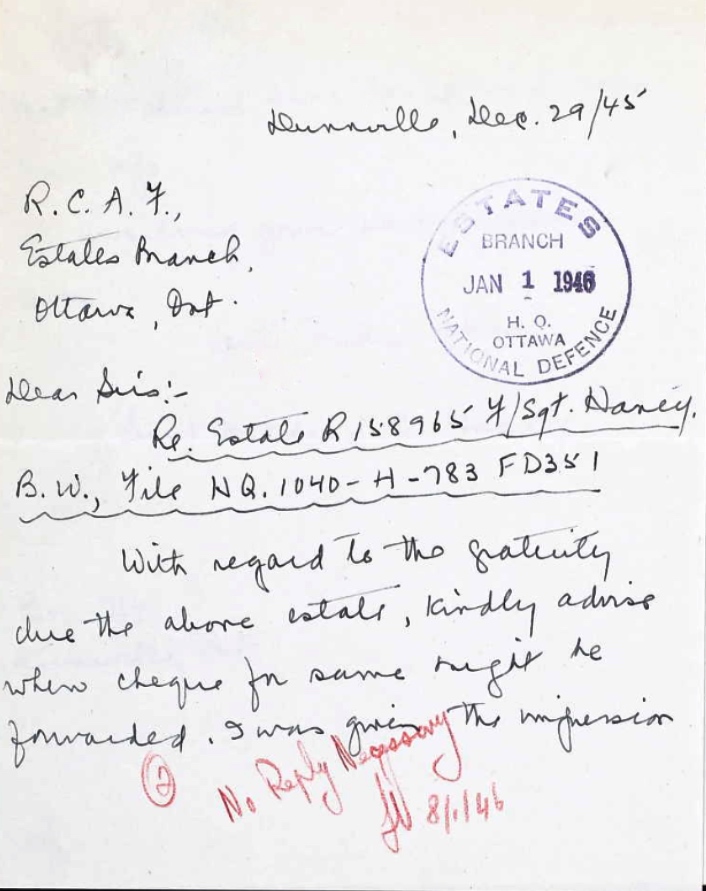 Dunnville, Dec. 29/45
R.C.A.F.,
Estates Branch,
Ottawa, Ont.
ESTATES
BRANCH
JAN 1 1946
H. Q.
OTTAWA
NATIONAL DEFENCE
Dear Sirs:-
Re. Estate R158965 F/Sgt. Haney,
B.W., File HQ. 1040-H-783 FD351
With regard to the gratuity
due the above estate, kindly advise
when cheque for same might be
forwarded. I was given the impression
2
No Reply Necessary
8/1/46